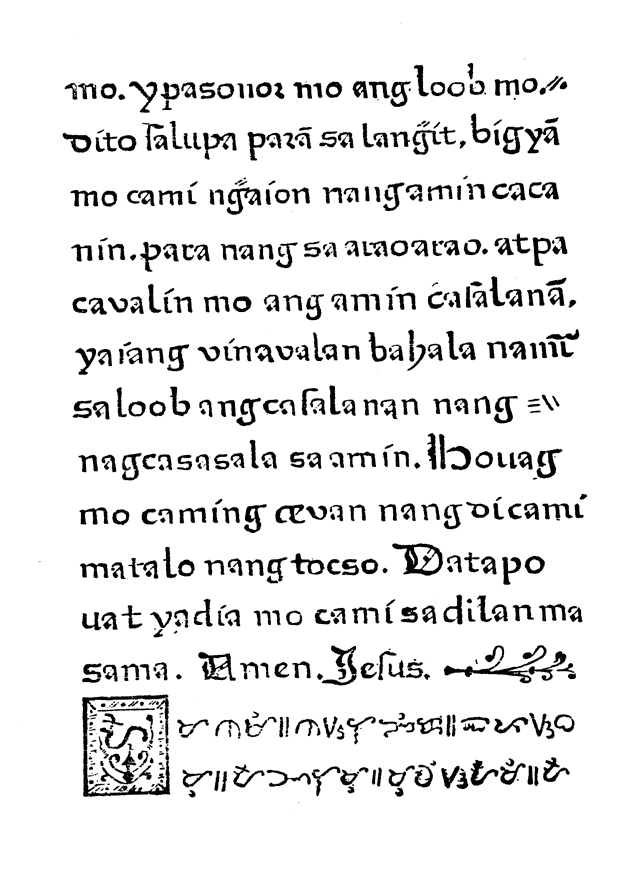 mo. ypasonor mo ang loob mo.
dito ſalupa parā sa lang̃it, bigyā
mo cami ng̃aion nang amin caca
nin. para nang sa araoarao. at pa
caualin mo ang amin caſalanā,
yaiang vinaualan bahala namī
sa loob ang caſalanan nang
nagcasasala sa amin. Houag
mo caming æwan nang di cami
matalo nang tocso. Datapo
uat yadia mo cami sa dilan ma
sama. Amen. Jeſus.
ᜀ ᜋ ᜈᜋᜒ᜶ᜈᜐᜎᜅᜒᜃ᜶ᜁᜉᜐᜊ
ᜋᜓ᜶ᜀᜅᜎᜋᜓ᜶ᜋᜓᜏᜒᜐᜀᜋᜒ᜶ᜀ